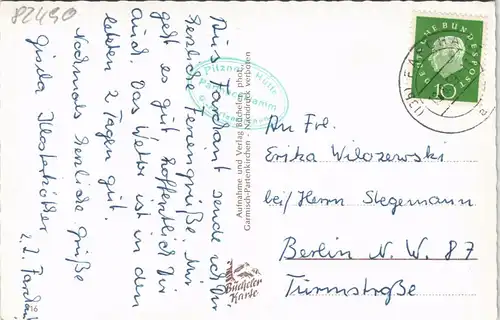 82490
Aus Farchant sende ich Dir
herzliche Feriengrüße. Mir
geht es gut hoffentlich Dir
auch. Das Wetter ist in den
letzten 2 Tagen gut.
Nochmals herzliche Grüße
Gisela
z. Z. Farchant
Pitzner Hütte
Aufnahme und Verlag Büchelen, phot.,
Garmisch-Partenkirchen - Nachdruck verboten
Bücheler
Karte
DEUTSCHE BUNDESPOST
10
An Frl.
Erika Wilozewski
bei/Herrn Stegemann
Berlin N. W. 87
Turmstraße